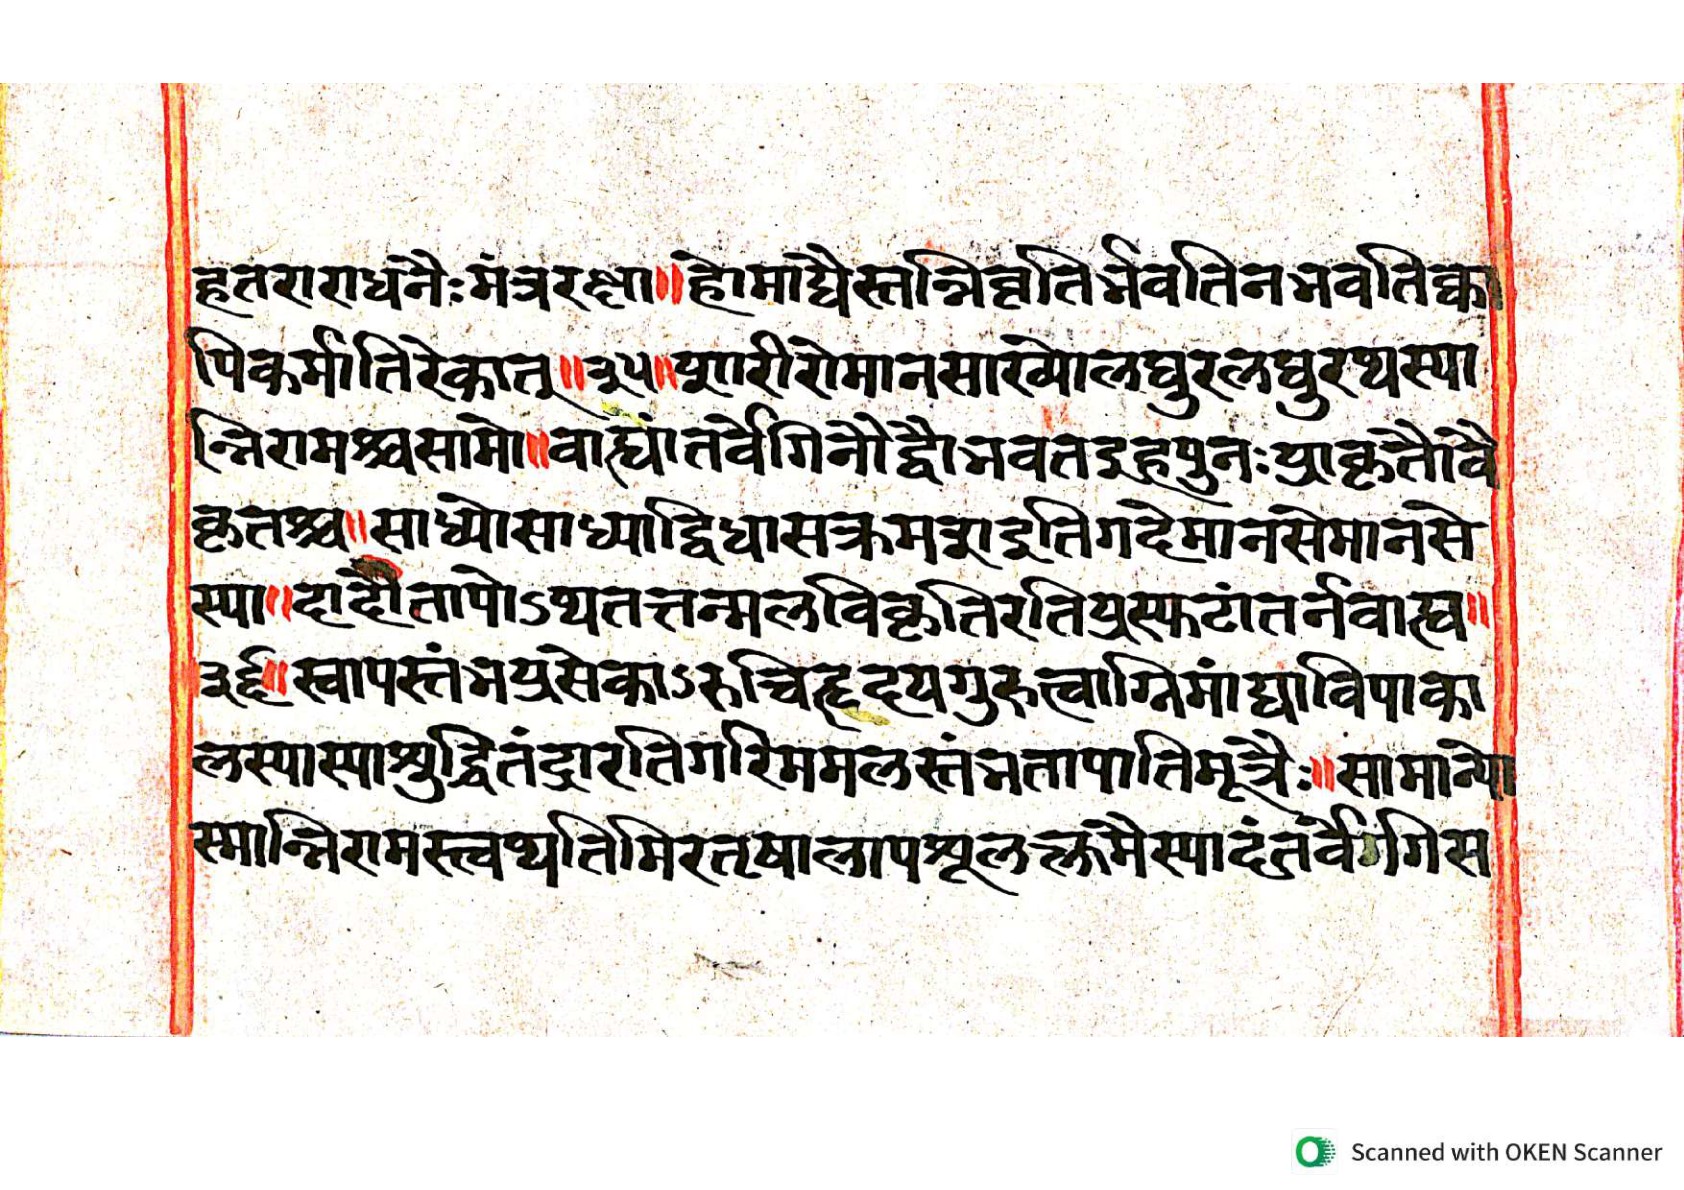 हतराराधनैःमंत्ररक्षा॥होमाद्यैस्तन्निवृतिर्भवतिनभवतिक्वा
पिकर्मातिरेकात्॥३५॥शारीरोमानसाख्योलघुरलघुरथस्या
न्निरामश्चसामो॥वाह्यांतर्वेगिनौद्वौभवतइहपुनःप्राकृतौवै
कृतश्च॥साध्योसाध्याद्विधासक्रमवशाइतिगदेमानसेमानसे
स्या॥दादौतापोऽथतत्तन्मलविकृतिरतिप्रस्फटांतर्नवास्व॥
३६॥स्वापस्तंभप्रसेकाऽरुचिहृदयगुरुत्वाग्निमांद्याविपाका
लस्यास्याशुद्धितंद्रारतिगरिममलस्तंभतापातिमूत्रैः॥सामान्यो
स्मान्निरामस्त्वथतिमिरतृषालापशूलक्लमैस्यादंतर्वेगिस
Scanned with OKEN Scanner